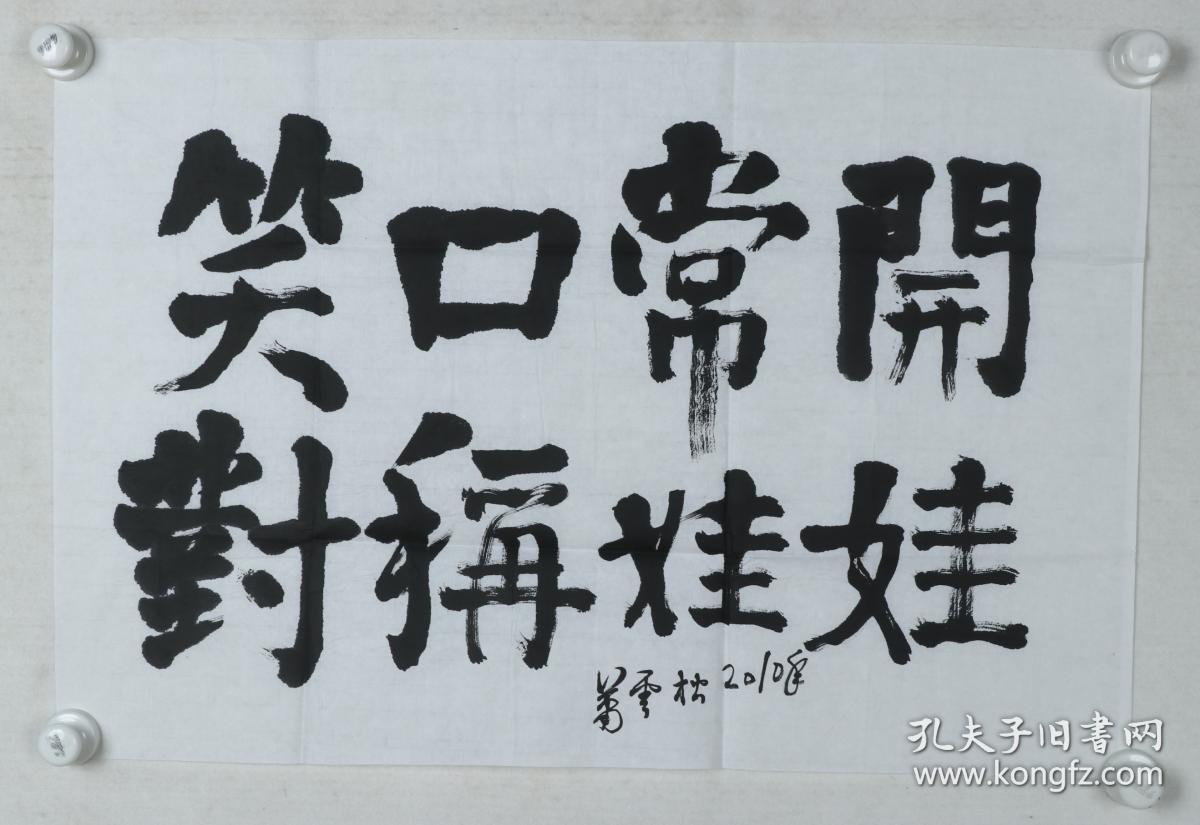 笑口常開
對稱娃娃
雲松 2010年
孔夫子旧書网
www.kongfz.com